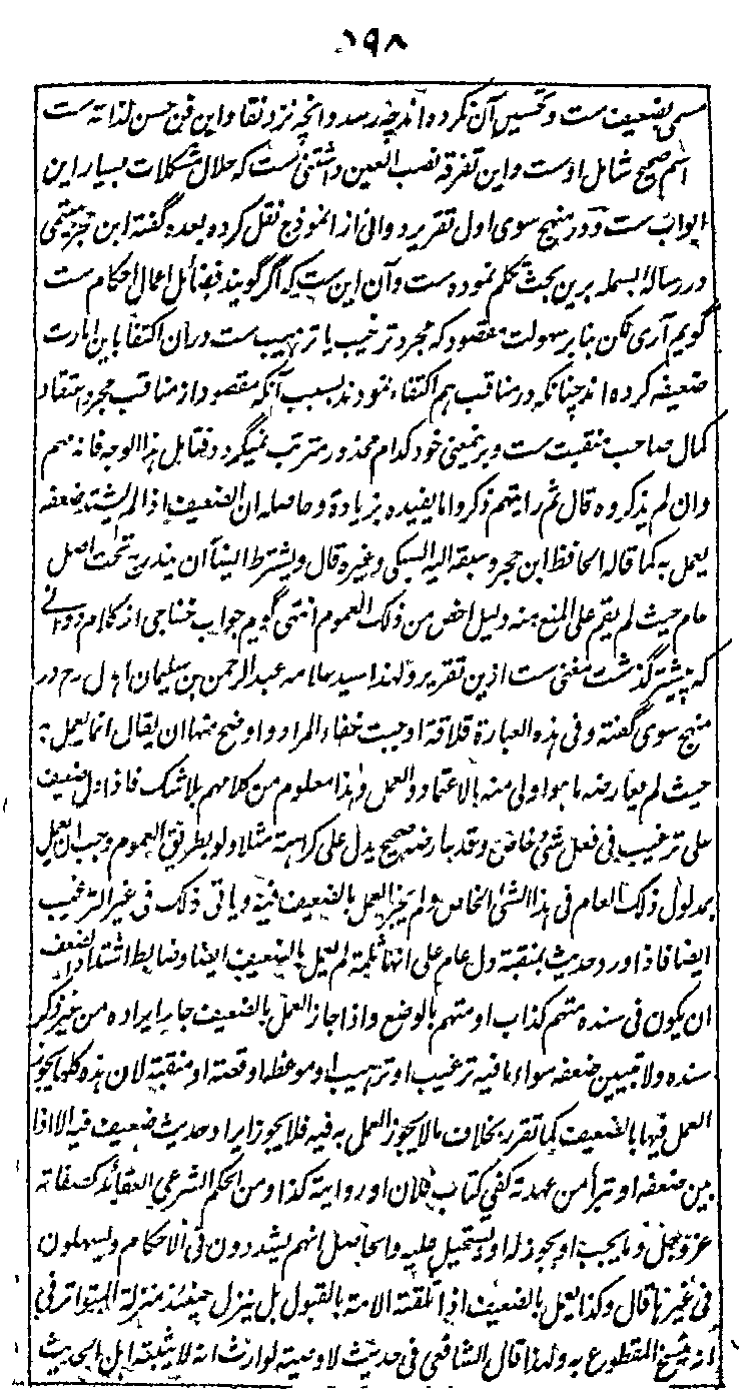 ۵۹۸
مسمی بضعیف ست و تحسین آن کرده اند چه رسد و آنچه نزد نقاد این فن حسن لذاته ست
اسم صحیح شامل اوست و این تفرقه نصب العین داشتنی ست که حلال مشکلات بسیار این
ابواب ست و در منهج سوی اول تقریر دوانی از انموذج نقل کرده بعده گفته ابن حجر هیتمی
در رسالۀ بسمله برین بحث تکلم نموده ست و آن این ست که اگر گویند فضائل اعمال احکام ست
گویم آری لکن بنا بر سهولت مقصود که مجرد ترغیب یا ترهیب ست دران اکتفا باین امارت
ضعیفه کرده اند چنانکه در مناقب هم اکتفاء نمودند بسبب آنکه مقصود از مناقب مجرد اعتقاد
کمال صاحب منقبت ست و بر نمعنی خود کدام محذور مترتب نمیگردد فتامل هذا الوجه فانه مهم
وان لم یذکروه قال ثم رایتهم ذکروا ما یفیده بزیادة و حاصله ان الضعیف اذا لم یشتد ضعفه
یعمل به کما قاله الحافظ ابن حجر و سبقه الیه السبکی و غیره قال و یشترط ایضا ان یندرج تحت اصل
عام حیث لم یقم علی المنع منه دلیل اخص من ذلک العموم انتهی گویم جواب خفاجی از کلام دوانی
که پیشتر گذشت مغنی ست ازین تقریر و لهذا سید علامه عبد الرحمن بن سلیمان اهدل رح در
منهج سوی گفته و فی هذه العبارة قلاقة اوجبت خفاء المراد و اوضح منها ان یقال انما یعمل به
حیث لم یعارضه ما هو اولی منه بالاعتماد و العمل و هذا معلوم من کلامهم بلا شک فاذا دل ضعیف
علی ترغیب فی فعل شئ خاص و قد عارضه صحیح یدل علی کراهته مثلا و لو بطریق العموم وجب العمل
بمدلول ذلک العام فی هذا الشئ الخاص و لم یجز العمل بالضعیف فیه و یاتی ذلک فی غیر الترغیب
ایضا فاذا ورد حدیث بمنقبة دل عام علی انها لم یعمل بالضعیف ایضا و ضابط اشتداد الضعف
ان یکون فی سنده متهم کذاب او متهم بالوضع و اذا جاز العمل بالضعیف جاز ایراده من غیر ذکر
سنده و لا تبیین ضعفه سواء ما فیه ترغیب او ترهیب او موعظة او قصة او منقبة لان هذه کلها یجوز
العمل فیها بالضعیف کما تقرر بخلاف ما لا یجوز العمل به فیه فلا یجوز ایراد حدیث ضعیف فیه الا اذا
بین ضعفه او تبرأ من عهدته کفی کتاب فلان او روایة کذا و من الحکم الشرعی العقائد کصفاته
عز و جل و ما یجب او یجوز له او یستحیل علیه و الحاصل انهم یشددون فی الاحکام و یسهلون
فی غیرها قال و کذا یعمل بالضعیف اذا تلقته الامة بالقبول بل ینزل حینئذ منزلة المتواتر فی
انه ینسخ المقطوع به و لهذا قال الشافعی فی حدیث لا وصیة لوارث انه لا یثبته اهل الحدیث